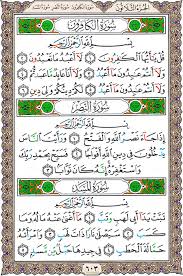 الجزء الثلاثون
سُورَةُ الكَافِرُون
بِسْمِ اللَّهِ الرَّحْمَٰنِ الرَّحِيمِ
قُلْ يَٰٓأَيُّهَا ٱلْكَٰفِرُونَ ١ لَآ أَعْبُدُ مَا تَعْبُدُونَ ٢
وَلَآ أَنتُمْ عَٰبِدُونَ مَآ أَعْبُدُ ٣ وَلَآ أَنَا۠ عَابِدٌ مَّا عَبَدتُّمْ ٤
وَلَآ أَنتُمْ عَٰبِدُونَ مَآ أَعْبُدُ ٥ لَكُمْ دِينُكُمْ وَلِىَ دِينِ ٦
سُورَةُ النَّصْر
بِسْمِ اللَّهِ الرَّحْمَٰنِ الرَّحِيمِ
إِذَا جَآءَ نَصْرُ ٱللَّهِ وَٱلْفَتْحُ ١ وَرَأَيْتَ ٱلنَّاسَ
يَدْخُلُونَ فِى دِينِ ٱللَّهِ أَفْوَاجًا ٢ فَسَبِّحْ بِحَمْدِ رَبِّكَ
وَٱسْتَغْفِرْهُ إِنَّهُۥ كَانَ تَوَّابًۢا ٣
سُورَةُ المَسَد
بِسْمِ اللَّهِ الرَّحْمَٰنِ الرَّحِيمِ
تَبَّتْ يَدَآ أَبِى لَهَبٍ وَتَبَّ ١ مَآ أَغْنَىٰ عَنْهُ مَالُهُۥ وَمَا
كَسَبَ ٢ سَيَصْلَىٰ نَارًا ذَاتَ لَهَبٍ ٣ وَٱمْرَأَتُهُۥ
حَمَّالَةَ ٱلْحَطَبِ ٤ فِى جِيدِهَا حَبْلٌ مِّن مَّسَدٍۭ ٥
٦٠٣